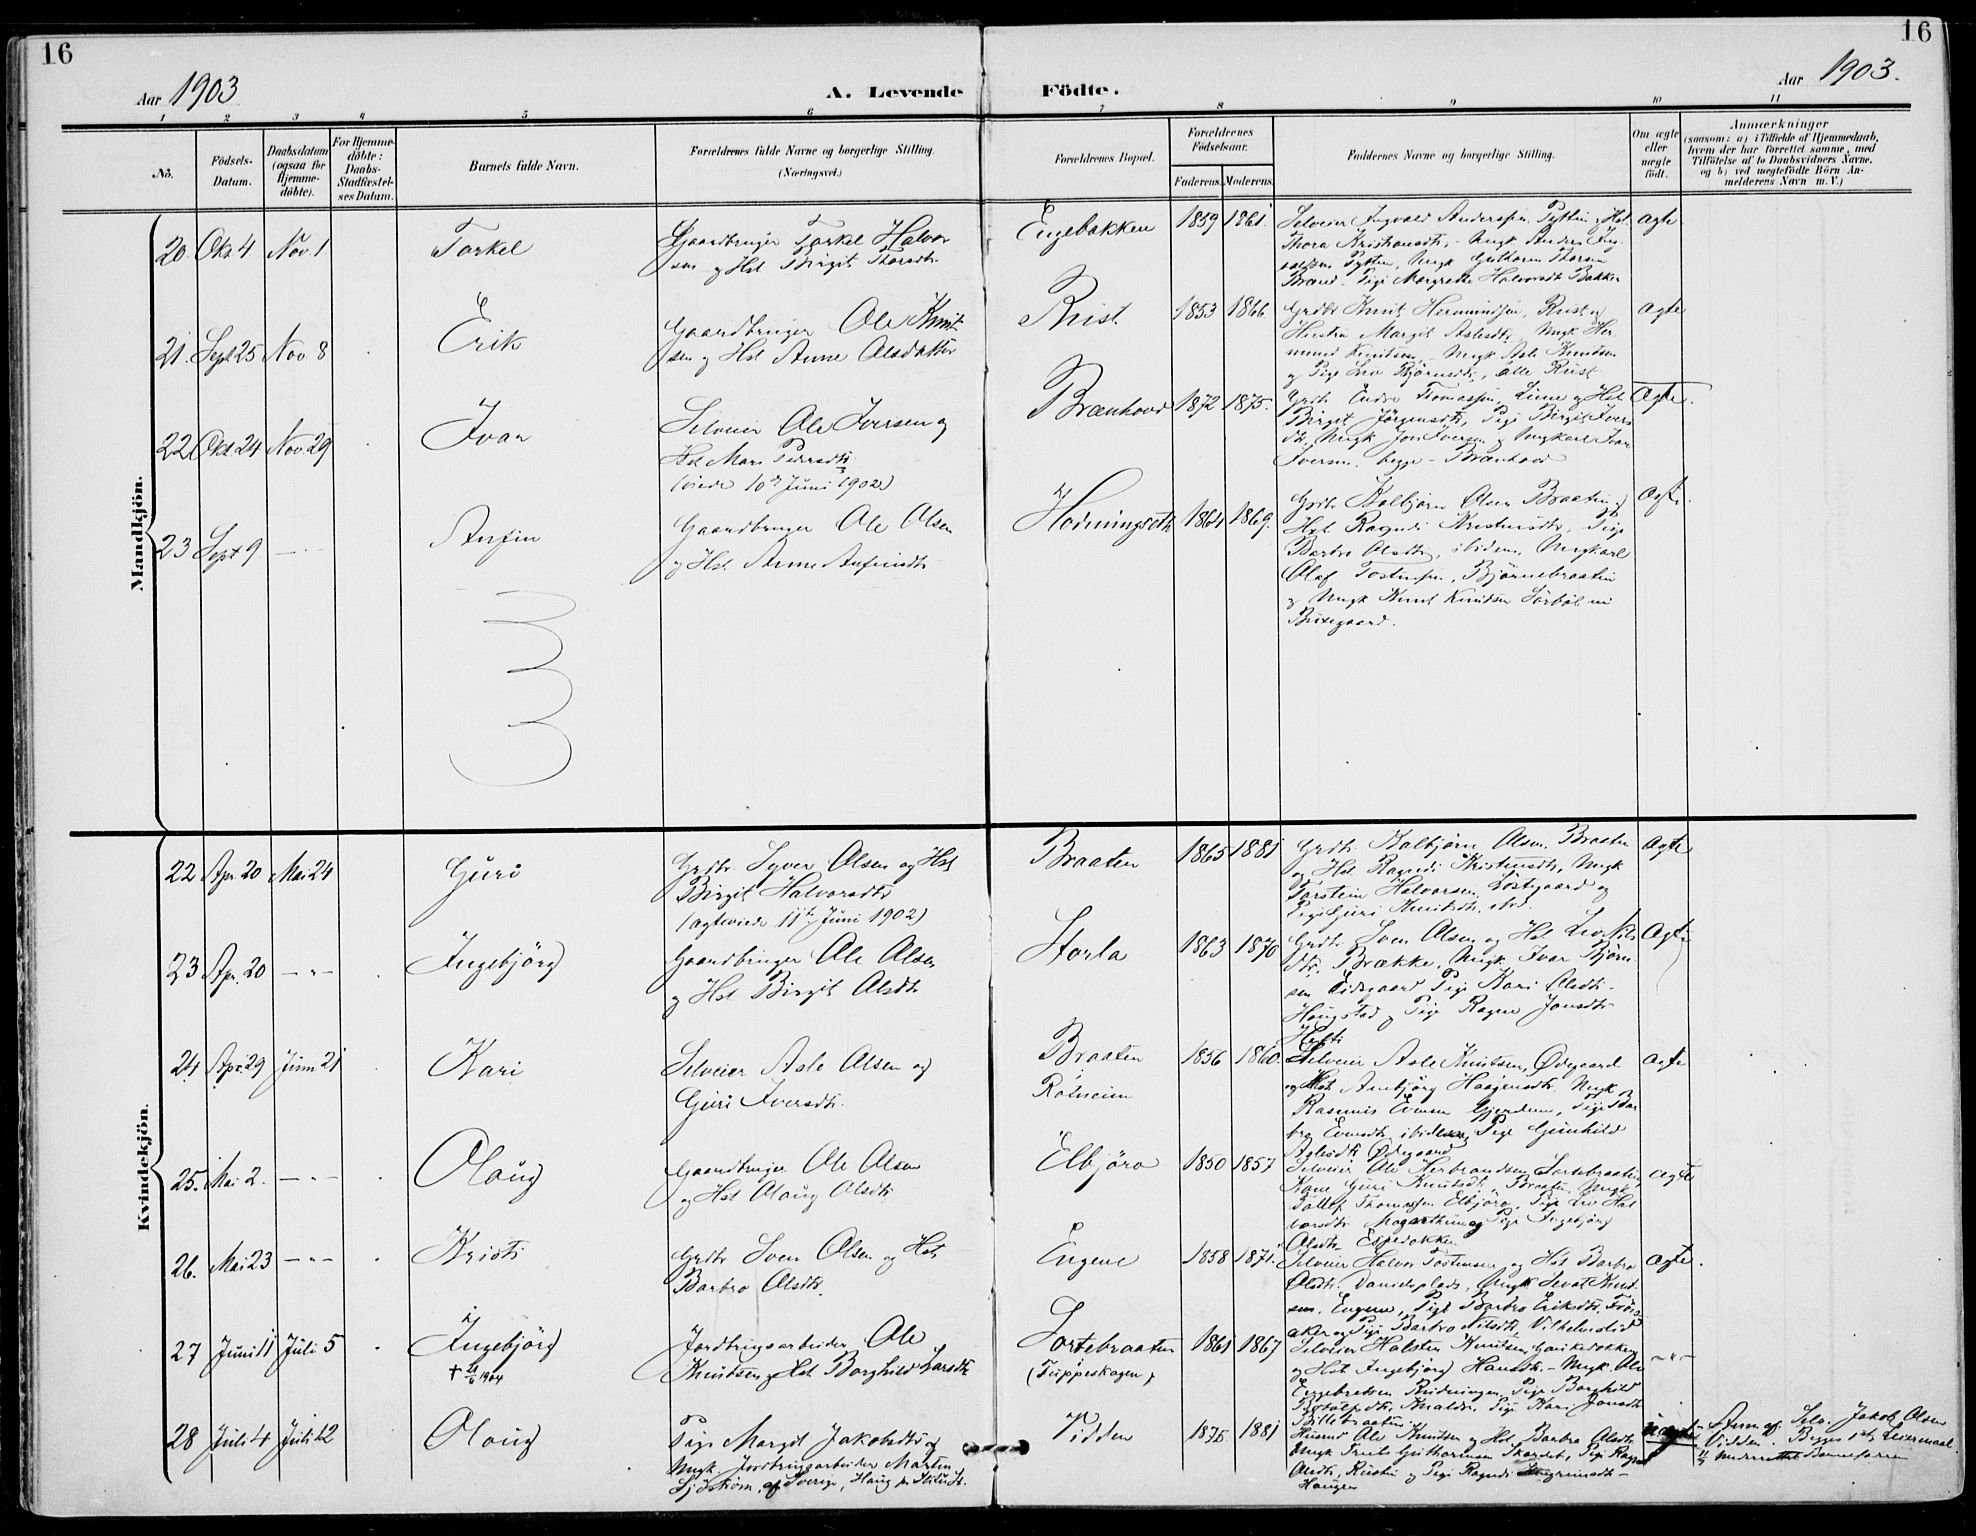 16
16
Aar 1903
A. Levende Födte.
Aar 1903.
1 2 3 4 5 6 7 8 9 10 11
No.
Födsels-
Datum.
Daabsdatum
(ogsaa for
Hjemme-
döbte).
For Hjemme-
döbte:
Daabs-
Stadfæstel-
ses Datum.
Barnets fulde Navn.
Forældrenes fulde Navne og borgerlige Stilling.
(Næringsvei.)
Forældrenes Bopæl.
Forældrenes
Födselsaar.
Faderens. Moderens.
Faddernes Navne og borgerlige Stilling.
Om ægte
eller
uægte
födt.
Anmærkninger
(saasom: a) i Tilfælde af Hjemmedaab,
hvem der har forrettet samme, med
Tilföielse af to Daabsvidners Navne,
og b) ved uægtefödte Börn An-
melderens Navn m. V.)
Mandkjön.
20. Okt 4 Nov. 1 Torkel
Gaardbruger Torkel Halvor
sen og Hst Birgit Thorsdtr
Engebakken 1859 1861
Selveier Ingvald Anderssen Pytten og Hst
Thora Kristiansdtr, Ungk Anders Ing
valdsen Pytten, Ungk Guttorm Thorsen
Pige Margrethe Halvorsdtr Bakken
ægte
21. Sept 25 Nov. 8 Erik
Gaardbruger Ole Knut
sen og Hst Anne Olsdatter
Rust 1853 1866
Grdbr Knut Hermundsen, Rust og
Hustru Margit Aslesdtr, Ungk Her
mund Knudsen, Ungk Asle Knudsen
og Pige Liv Björnsdtr, alle Rust
ægte
22. Okt 24 Nov. 29 Ivar
Selveier Ole Iversen og
Hst Mari Pedersdtr
(viede 10de Juni 1902)
Brænhovd 1872 1875.
Grdbr Endre Thomassen, Liene og Hst
Birgit Jörgensdtr, Pige Birgit Ivers
dtr, Ungk Jon Iversen og Ungkarl Ivar
Iversen, begge Brænhovd
ægte.
23 Sept 9. — Anfin
Gaardbruger Ole Olsen
og Hst Anne Anfinsdtr
1864 1869.
Grdbr Kolbjörn Olsen Braaten og
Hst Ragndi Kristensdtr, Pige
Barbro Olsdtr, ibidem, Ungkarl
Olaf Tostensen, Björnebraaten
og Ungk Knut Knudsen
ægte.
Kvindekjön.
22 Apr. 20 Mai 24 Guri
Grdbr Syver Olsen og Hst
Birgit Halvorsdtr
(ægteviede 11te Juni 1902)
Braaten 1865 1881
Grdbr. Kolbjörn Olsen Braaten
og Hst Ragndi Kristensdtr, Ungk
Torstein Halvorsen, og
Pige Guri Knutsdtr
ægte
23 Apr. 20 — " — Ingebjörg
Gaardbruger Ole Olsen
og Hst Birgit Olsdtr
Storla 1863 1870
Grdbr. Sven Olsen og Hst Liv Nils
dtr. Brække, Ungk Ivar Björn
sen Eidsgaard Pige Kari Olsdtr
Haugstad og Pige Ragne Jonsdtr
ægte
24 Apr. 29 Juni 21 Kari
Selveier Asle Olsen og
Guri Iversdtr.
Braaten
Rotneim
1856 1860.
Selveier Asle Knutsen, Ödegaard
og Hst Anbjörg Haagensdtr. Ungk
Rasmus Evensen Gjerdene, Pige Bar
bro Evensdtr, ibidem, Pige Gunhild
Aslesdtr Ödegaard
ægte
25. Mai 2. — " — Olaug
Gaardbruger Ole Olsen
og Hst Olaug Olsdtr
Elbjöra 1850 1857
Selveier Ole Herbrandsen, Sortebraaten
Kone Guri Knutsdtr, Braaten, Ungk
Tollef Thomassen Elbjöra, Pige Liv Hal
vorsdtr og Pige Ingebjörg
Olsdtr Espedokken
ægte
26. Mai 23 — " — Kristi
Grdbr Sven Olsen og Hst
Barbro Olsdtr.
Engene 1858 1871.
Selveier Halvor Tostensen og Hst Barbro
Olsdtr. Danielsplads, Ungk Levor Knut
sen, Engene, Pige Barbro Eriksdtr,
og Pige Barbro Nilsdtr, Vilhelmslid
ægte.
27 Juni 11 Juli 5 Ingebjörg
† 24/6 1904
Jordbrugsarbeider Ole
Knudsen og Hst Borghild Larsdtr
Sortebraaten
(Tuppeskogen)
1861 1867
Selveier Halsten Knutsen,
og Hst Ingebjörg Hansdtr. Ungk Ole
Engebretsen Rudningen, Pige Borghild
Pige Kari Jonsdtr
— " —
28 Juli 4 Juli 12 Olaug
Pige Margit Jakobsdtr og
Ungk Jordbrugsarbeider Martin
Sjöström, af Sverige,
Vidden 1875. 1881
Husmd Ole Knudsen og Hst Barbro Olsdtr,
Ungk Truls Guttormsen Pige Ragne
Olsdtr, Rustu og Pige Ragndi
Haugen
uægte
Anm. af Selv. Jakob Olsen
Vidden. Begges 1ste Leiermaal.
Underrettet Barnefaren